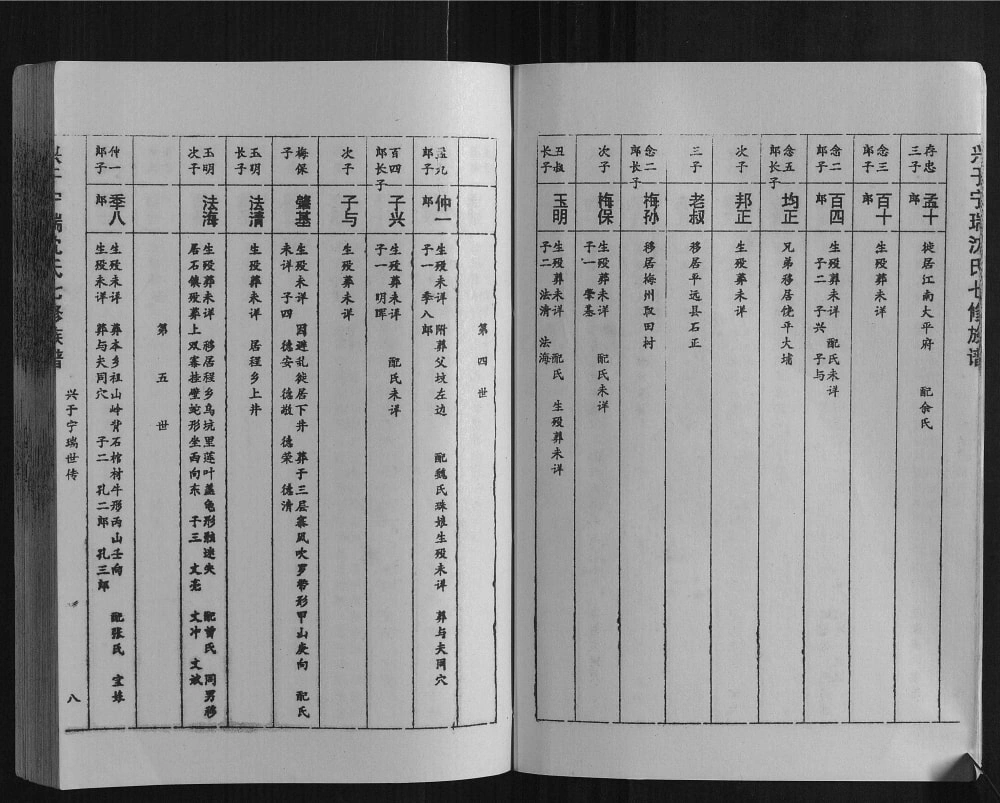 兴于宁瑞沈氏七修族谱
存忠
三子
孟十
郎
徙居江南大平府 配余氏
念三
郎子
百十
生殁葬未详
念二
郎子
百四
郎
生殁葬未详 配氏未详
子二 子兴 子与
念五
郎长子
均正
兄弟移居饶平大埔
次子
邦正
生殁葬未详
三子
老叔
移居平远县石正
念二
郎长子
梅孙
移居梅州取田村
次子
梅保
生殁葬未详 配氏未详
子一 肇基
丑叔
长子
玉明
生殁葬未详 配氏 生殁葬未详
子二 法清 法海
第四世
郎子
仲一
郎
生殁未详 附葬父坟左边 配魏氏珠娘生殁未详 葬与夫同穴
子一 季八郎
百四
郎长子
子兴
生殁葬未详 配氏未详
子一 明晖
次子
子与
生殁葬未详
梅保
子
肇基
生殁未详 因避乱徙居下井 葬于三层寨风吹罗带形甲山庚向 配氏
未详 子四 德安 德敬 德荣 德清
玉明
长子
法清
生殁葬未详 居程乡上井
玉明
次子
法海
生殁葬未详 移居程乡乌坑里莲叶盖龟形骸迷失 配曾氏 同男移
居石镇殁葬上双寨挂壁蛇形坐西向东 子三 文亮 文冲 文斌
第五世
仲一
郎子
季八
郎
生殁未详 葬本乡祖山岭背石棺材牛形丙山壬向 配张氏 宝妹
生殁未详 葬与夫同穴 子二 孔二郎 孔三郎
兴于宁瑞世传
八